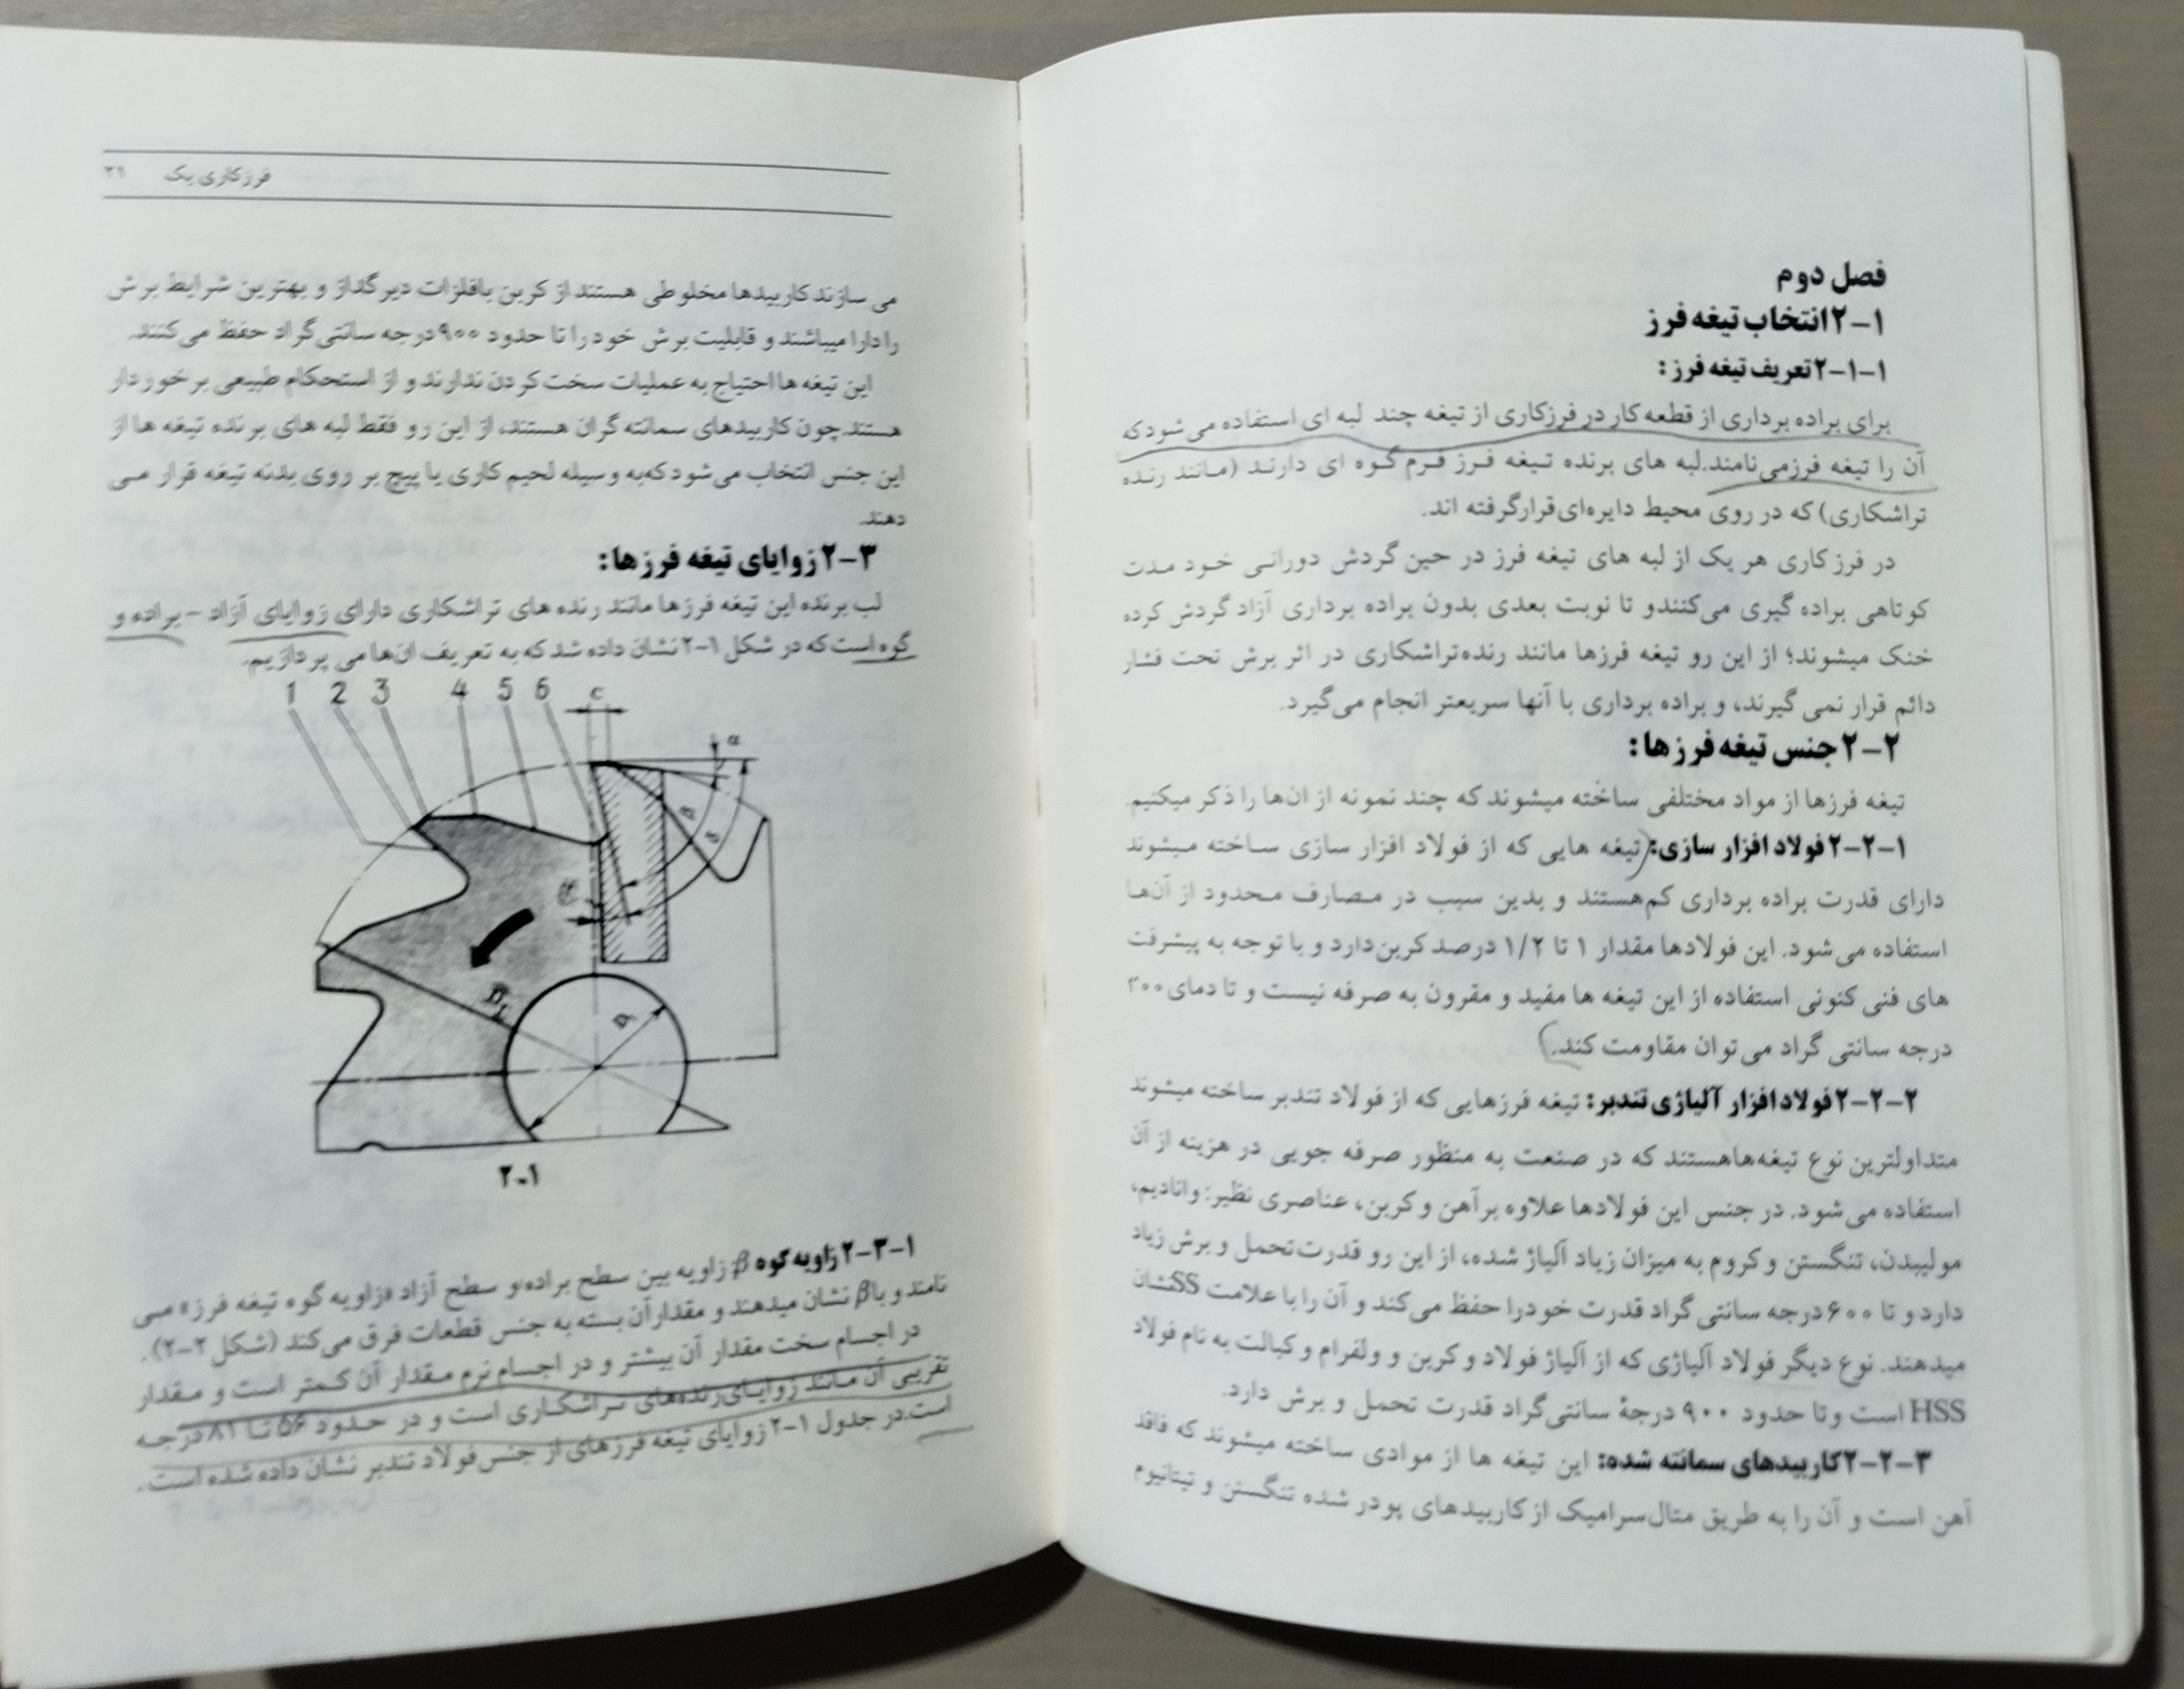 فصل دوم
۲-۱ انتخاب تیغه فرز
۲-۱-۱ تعریف تیغه فرز:
برای براده برداری از قطعه کار در فرزکاری از تیغه چند لبه ای استفاده می شود که
آن را تیغه فرز می نامند. لبه های برنده تیغه فرز فرم گوه ای دارند (مانند رنده
تراشکاری) که در روی محیط دایره ای قرار گرفته اند.
در فرز کاری هر یک از لبه های تیغه فرز در حین گردش دورانی خود مدت
کوتاهی براده گیری می کنند و تا نوبت بعدی بدون براده برداری آزاد گردش کرده
خنک میشوند؛ از این رو تیغه فرزها مانند رنده تراشکاری در اثر برش تحت فشار
دائم قرار نمی گیرند، و براده برداری با آنها سریعتر انجام می گیرد.
۲-۲ جنس تیغه فرزها:
تیغه فرزها از مواد مختلفی ساخته میشوند که چند نمونه از ان ها را ذکر میکنیم.
۲-۲-۱ فولاد افزار سازی: تیغه هایی که از فولاد افزار سازی ساخته میشوند
دارای قدرت براده برداری کم هستند و بدین سبب در مصارف محدود از آن ها
استفاده می شود. این فولادها مقدار ۱ تا ۱/۲ درصد کربن دارد و با توجه به پیشرفت
های فنی کنونی استفاده از این تیغه ها مفید و مقرون به صرفه نیست و تا دمای ۳۰۰
درجه سانتی گراد می توان مقاومت کند.
۲-۲-۲ فولاد افزار آلیاژی تندبر: تیغه فرزهایی که از فولاد تندبر ساخته میشوند
متداولترین نوع تیغه ها هستند که در صنعت به منظور صرفه جویی در هزینه از آن
استفاده می شود. در جنس این فولادها علاوه بر آهن و کربن، عناصری نظیر: وانادیم،
مولیبدن، تنگستن و کروم به میزان زیاد آلیاژ شده، از این رو قدرت تحمل و برش زیاد
دارد و تا ۶۰۰ درجه سانتی گراد قدرت خود را حفظ می کند و آن را با علامت SS نشان
میدهند. نوع دیگر فولاد آلیاژی که از آلیاژ فولاد و کربن و ولفرام و کبالت به نام فولاد
HSS است و تا حدود ۹۰۰ درجهٔ سانتی گراد قدرت تحمل و برش دارد.
۲-۲-۳ کاربیدهای سمانته شده: این تیغه ها از موادی ساخته میشوند که فاقد
آهن است و آن را به طریق متال سرامیک از کاربیدهای پودر شده تنگستن و تیتانیوم
فرزکاری یک
می سازند کاربیدها مخلوطی هستند از کربن با فلزات دیر گداز و بهترین شرایط برش
را دارا میباشند و قابلیت برش خود را تا حدود ۹۰۰ درجه سانتی گراد حفظ می کنند.
این تیغه ها احتیاج به عملیات سخت کردن ندارند و از استحکام طبیعی برخوردار
هستند. چون کاربیدهای سمانته گران هستند، از این رو فقط لبه های برنده تیغه ها از
این جنس انتخاب می شود که به وسیله لحیم کاری یا پیچ بر روی بدنه تیغه قرار می
دهند.
۲-۳ زوایای تیغه فرزها:
لب برنده این تیغه فرزها مانند رنده های تراشکاری دارای زوایای آزاد - براده و
گوه است که در شکل ۲-۱ نشان داده شد که به تعریف ان ها می پردازیم.
1 2 3 4 5 6 c
α
β
δ
۲-۱
۲-۳-۱ زاویه گوه β: زاویه بین سطح براده و سطح آزاد «زاویه گوه تیغه فرز» می
نامند و با β نشان میدهند و مقدار آن بسته به جنس قطعات فرق می کند (شکل ۲-۲).
در اجسام سخت مقدار آن بیشتر و در اجسام نرم مقدار آن کمتر است و مقدار
تقریبی آن مانند زوایای رنده های تراشکاری است و در حدود ۵۶ تا ۸۱ درجه
است. در جدول ۲-۱ زوایای تیغه فرزهای از جنس فولاد تندبر نشان داده شده است.